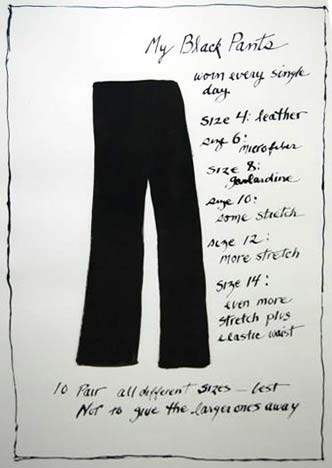 My Black Pants
worn every single
day
size 4: leather
size 6:
microfiber
size 8:
gabardine
size 10:
some stretch
size 12:
more stretch
size 14:
even more
stretch plus
elastic waist
10 Pair all different sizes – lest
Not to give the larger ones away